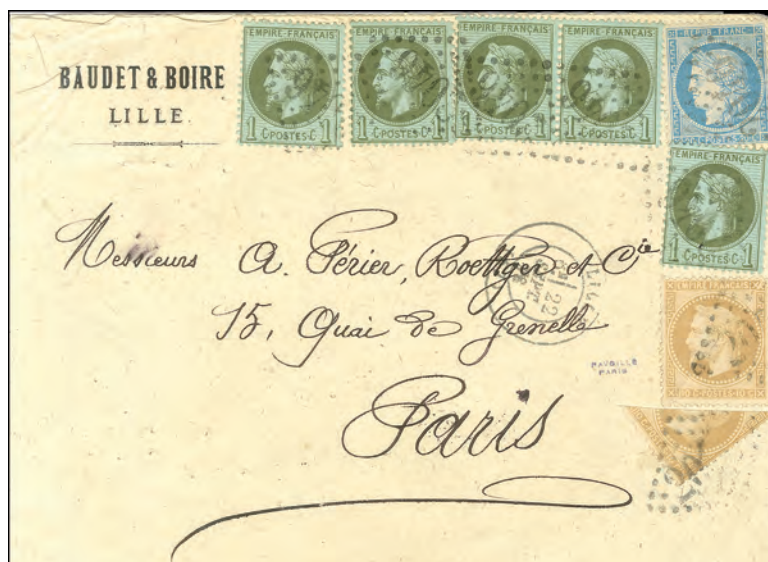 BAUDET & BOIRE
LILLE
EMPIRE FRANÇAIS
1 C POSTES C 1
EMPIRE FRANÇAIS
1 C POSTES C 1
EMPIRE FRANÇAIS
1 C POSTES C 1
EMPIRE FRANÇAIS
1 C POSTES C 1
REPUB. FRANC.
EMPIRE FRANÇAIS
1 C POSTES C 1
Messieurs A. Périer, Roettger et Cie
15, Quai de Grenelle
Paris
LILLE
22
SEPT
EMPIRE FRANÇAIS
10 C POSTES 10 C
PAVOILLE
PARIS